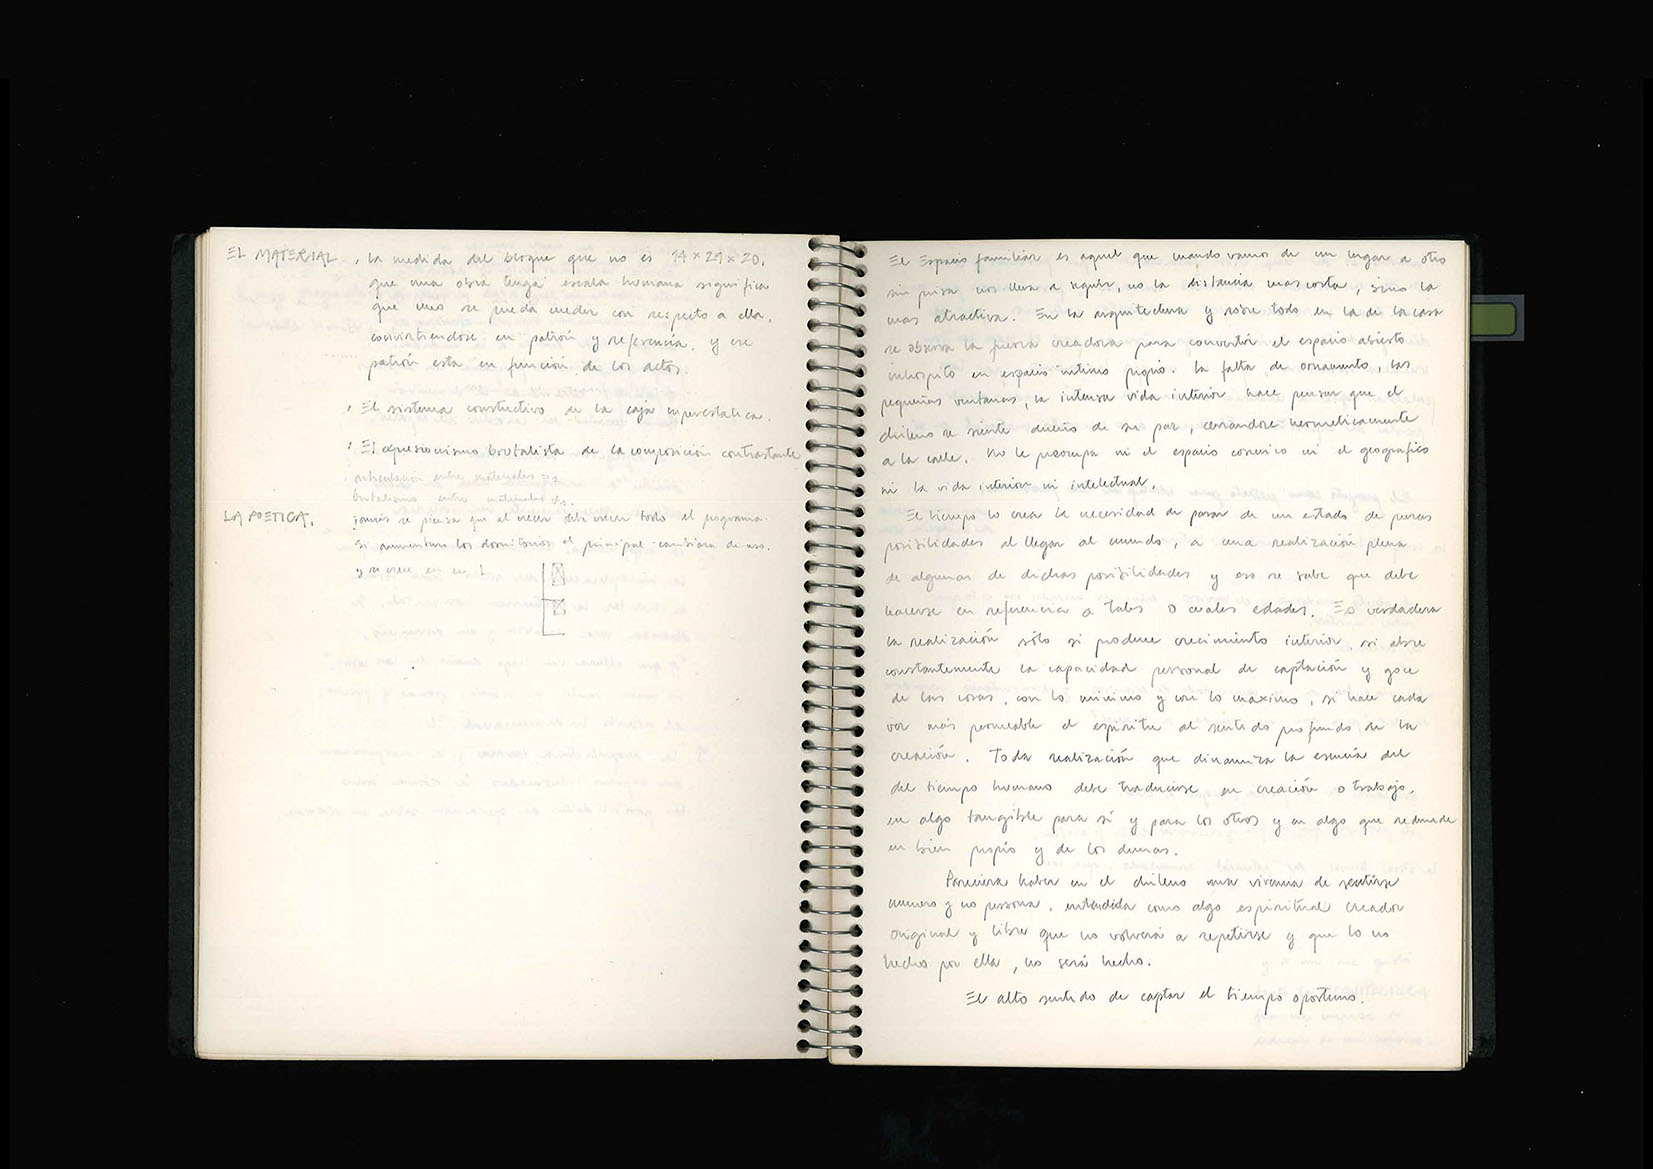 EL MATERIAL. , La medida del bloque que no es 14 x 29 x 20.
que una obra tenga escala humana significa
que uno se pueda medir con respecto a ella,
convirtiendose en patrón y referencia, y ese
patrón esta en función de los actos.
, El sistema constructivo de la caja hiperestatica.
, El expresionismo brutalista de la composición contrastante
articulación entre materiales
brutalismo entre materiales
LA POETICA. jamás se piensa que al crecer debe crecer todo el programa.
si aumentan los dormitorios el principal cambiara de uso.
y se crece en
El Espacio familiar es aquel que cuando vamos de un lugar a otro
sin prisa nos lleva a seguir, no la distancia mas corta, sino la
mas atractiva. En la arquitectura y sobre todo en la de la casa
se observa la fuerza creadora para convertir el espacio abierto
inhospito en espacio intimo propio. La falta de ornamento, las
pequeñas ventanas, la intensa vida interior hace pensar que el
chileno se siente dueño de su paz, cerrandose hermeticamente
a la calle. No le preocupa ni el espacio cosmico ni el geografico
ni la vida interior ni intelectual.
El tiempo lo crea la necesidad de pasar de un estado de puras
posibilidades al llegar al mundo, a una realización plena
de algunas de dichas posibilidades y eso se sabe que debe
hacerse en referencia a tales o cuales edades. Es verdadera
la realización sólo si produce crecimiento interior, si abre
constantemente la capacidad personal de captación y goce
de las cosas, con lo minimo y con lo maximo, si hace cada
vez más permeable el espiritu al sentido profundo de la
creación. Toda realización que dinamiza la esencia del
del tiempo humano debe traducirse en creación o trabajo,
en algo tangible para sí y para los otros y en algo que redunde
en bien propio y de los demas.
Pareciera haber en el chileno una vivencia de sentirse
numero y no persona, entendida como algo espiritual creador
original y libre que no volverá a repetirse y que lo no
hecho por ella, no será hecho.
El alto sentido de captar el tiempo oportuno.